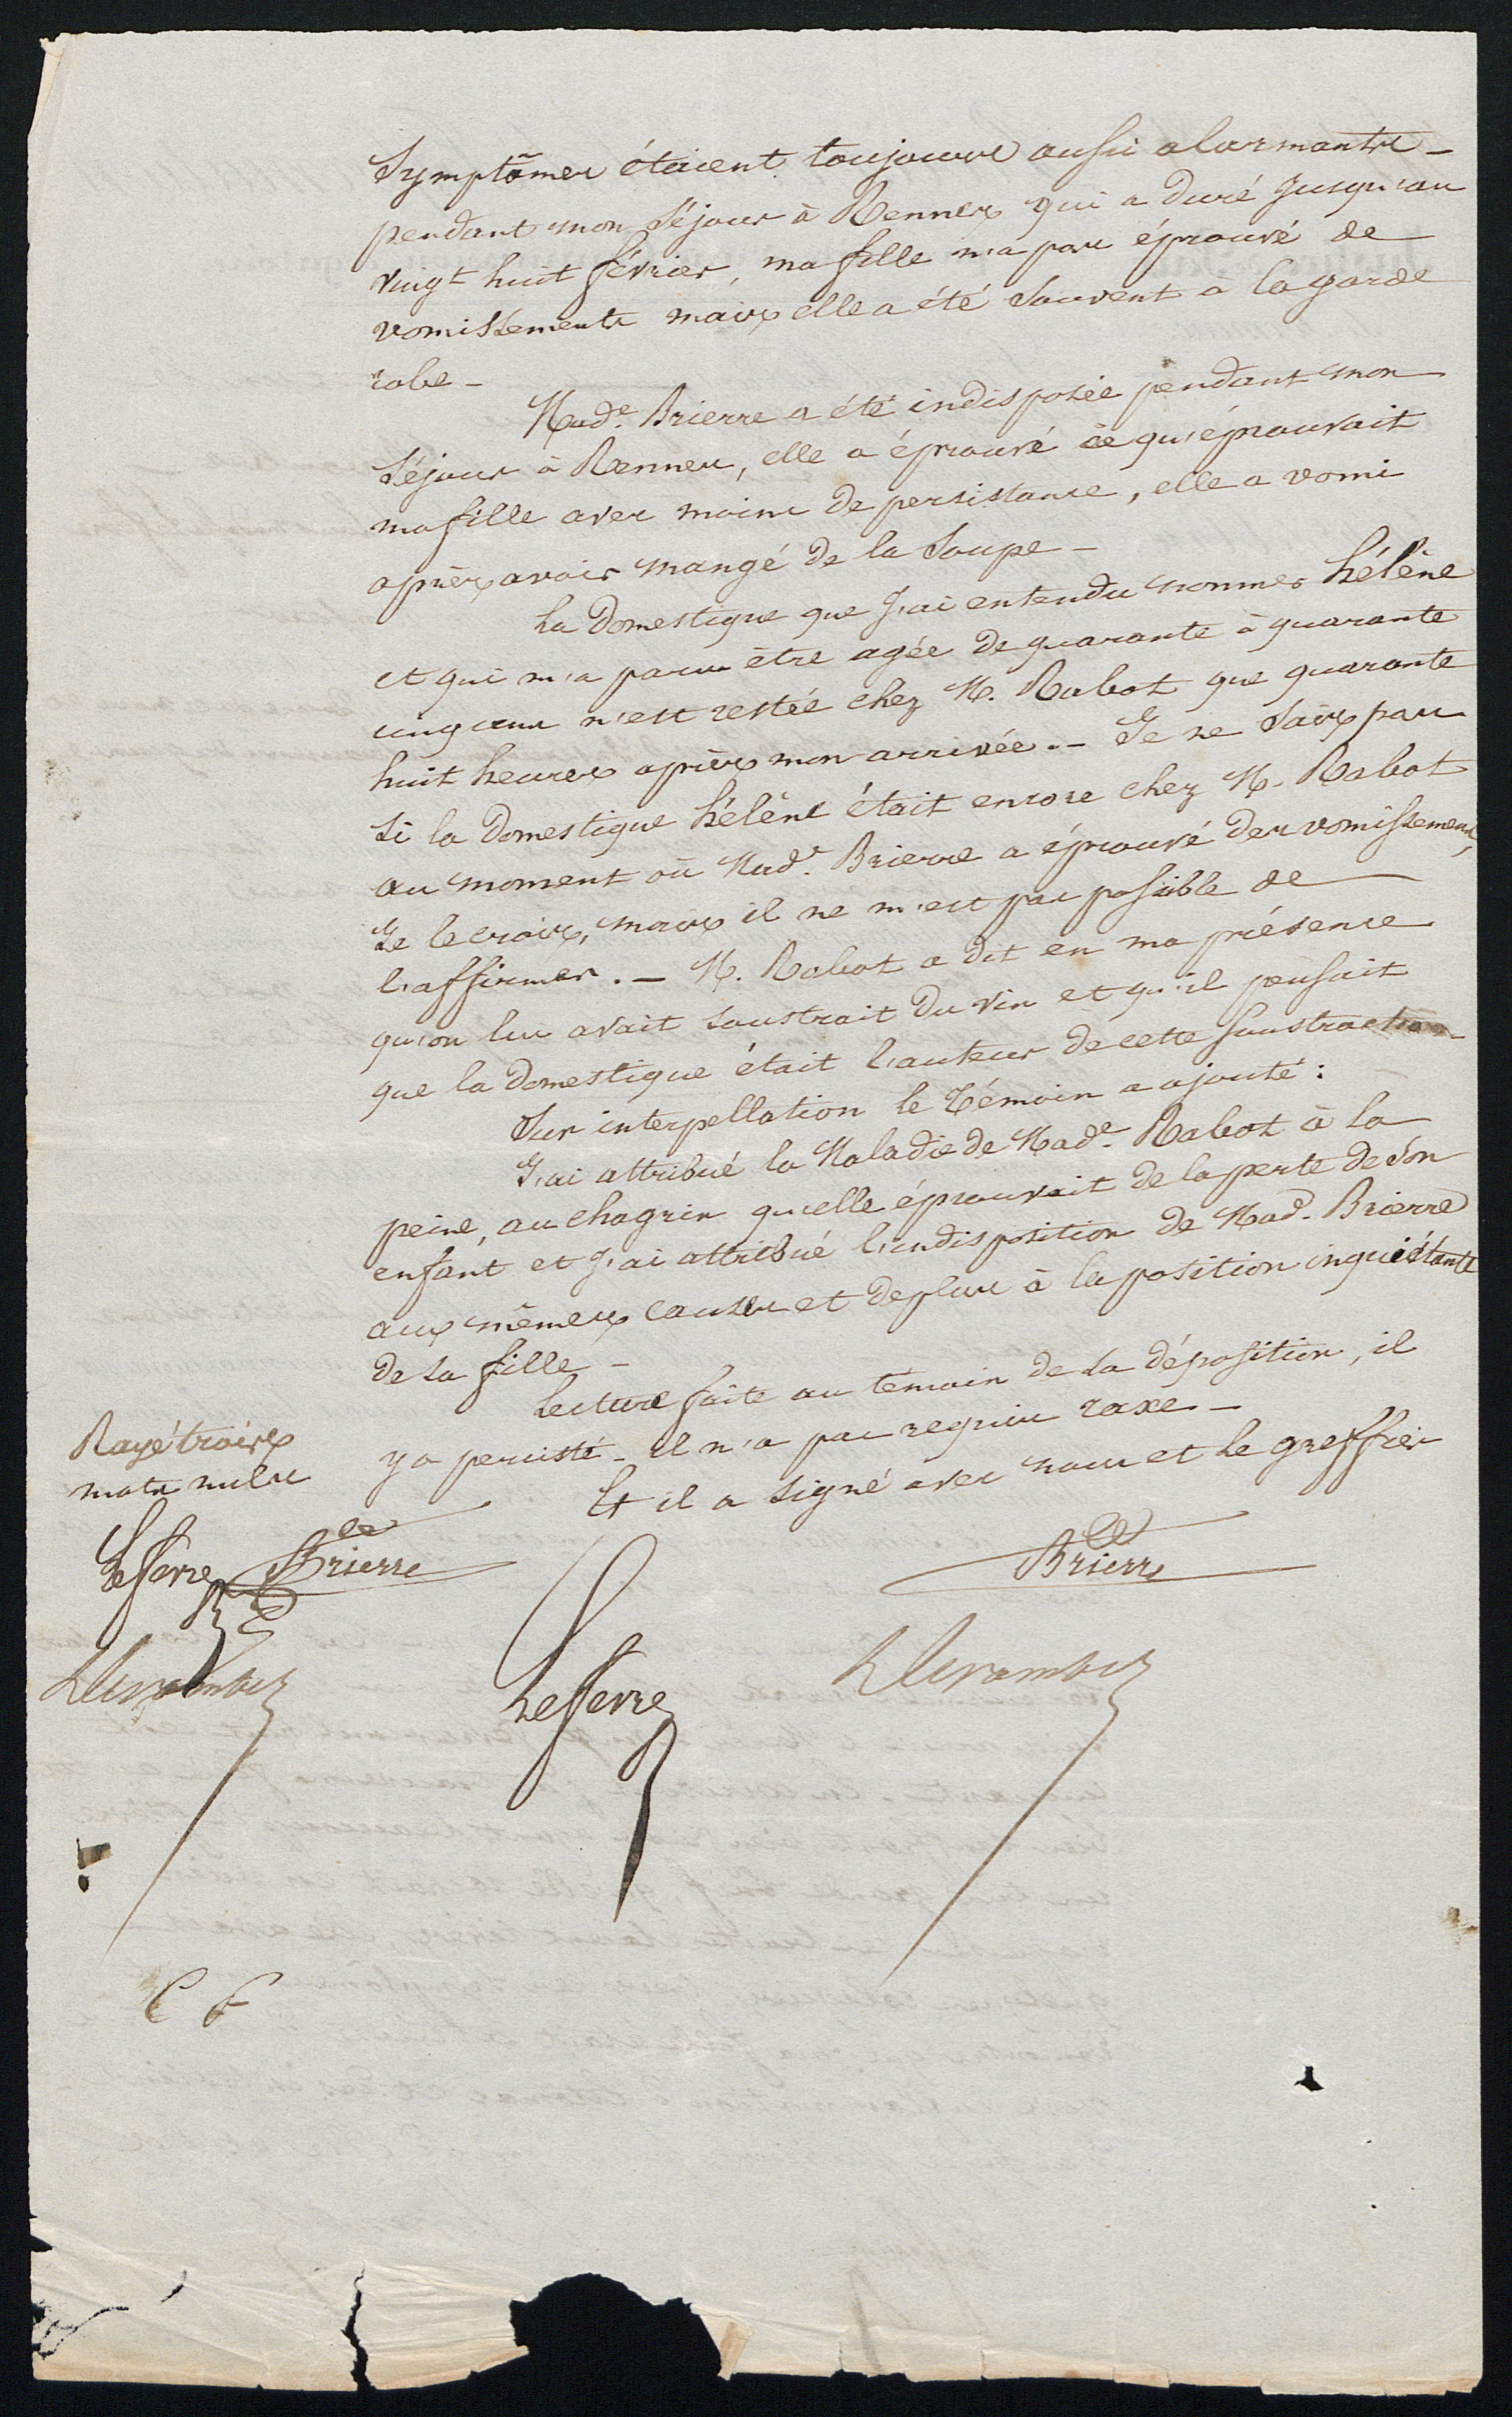 Symptômes étaient toujours aussi alarmants –
pendant mon séjour à Rennes qui a duré jusqu'au
vingt huit février, ma fille n'a pas éprouvé de
vomissements mais elle a été souvent à la garde
robe –
Made. Brierre a été indisposée pendant mon
séjour à Rennes, elle a éprouvé ce qu'éprouvait
ma fille avec moins de persistance, elle a vomi
après avoir mangé de la soupe –
La domestique que j'ai entendu nommer hélène
et qui m'a paru être agée de quarante à quarante
cinq ans n'est restée chez M. Rabot que quarante
huit heures après mon arrivée. – Je ne sais pas
si la domestique hélène était encore chez M. Rabot
au moment où Made. Brierre a éprouvé des vomissements,
Je le crois, mais il ne m'est pas possible de
l'affirmer. – M. Rabot a dit en ma présence
qu'on lui avait soustrait du vin et qu'il pensait
que la domestique était l'auteur de cette soustraction –
Sur interpellation le témoin a ajouté :
J'ai attribué la Maladie de Made. Rabot à la
peine, au chagrin qu'elle éprouvait de la perte de son
enfant et j'ai attribué l'indisposition de Made. Brierre
aux mêmes causes et de plus à la position inquiétante
de sa fille –
Lecture faite au témoin de sa déposition, il
y a persisté – il n'a pas requis taxe –
Et il a signé avec nous et le greffier
Rayé trois
mots nuls
Lefevre Brierre
Brierre
Lefevre
C F